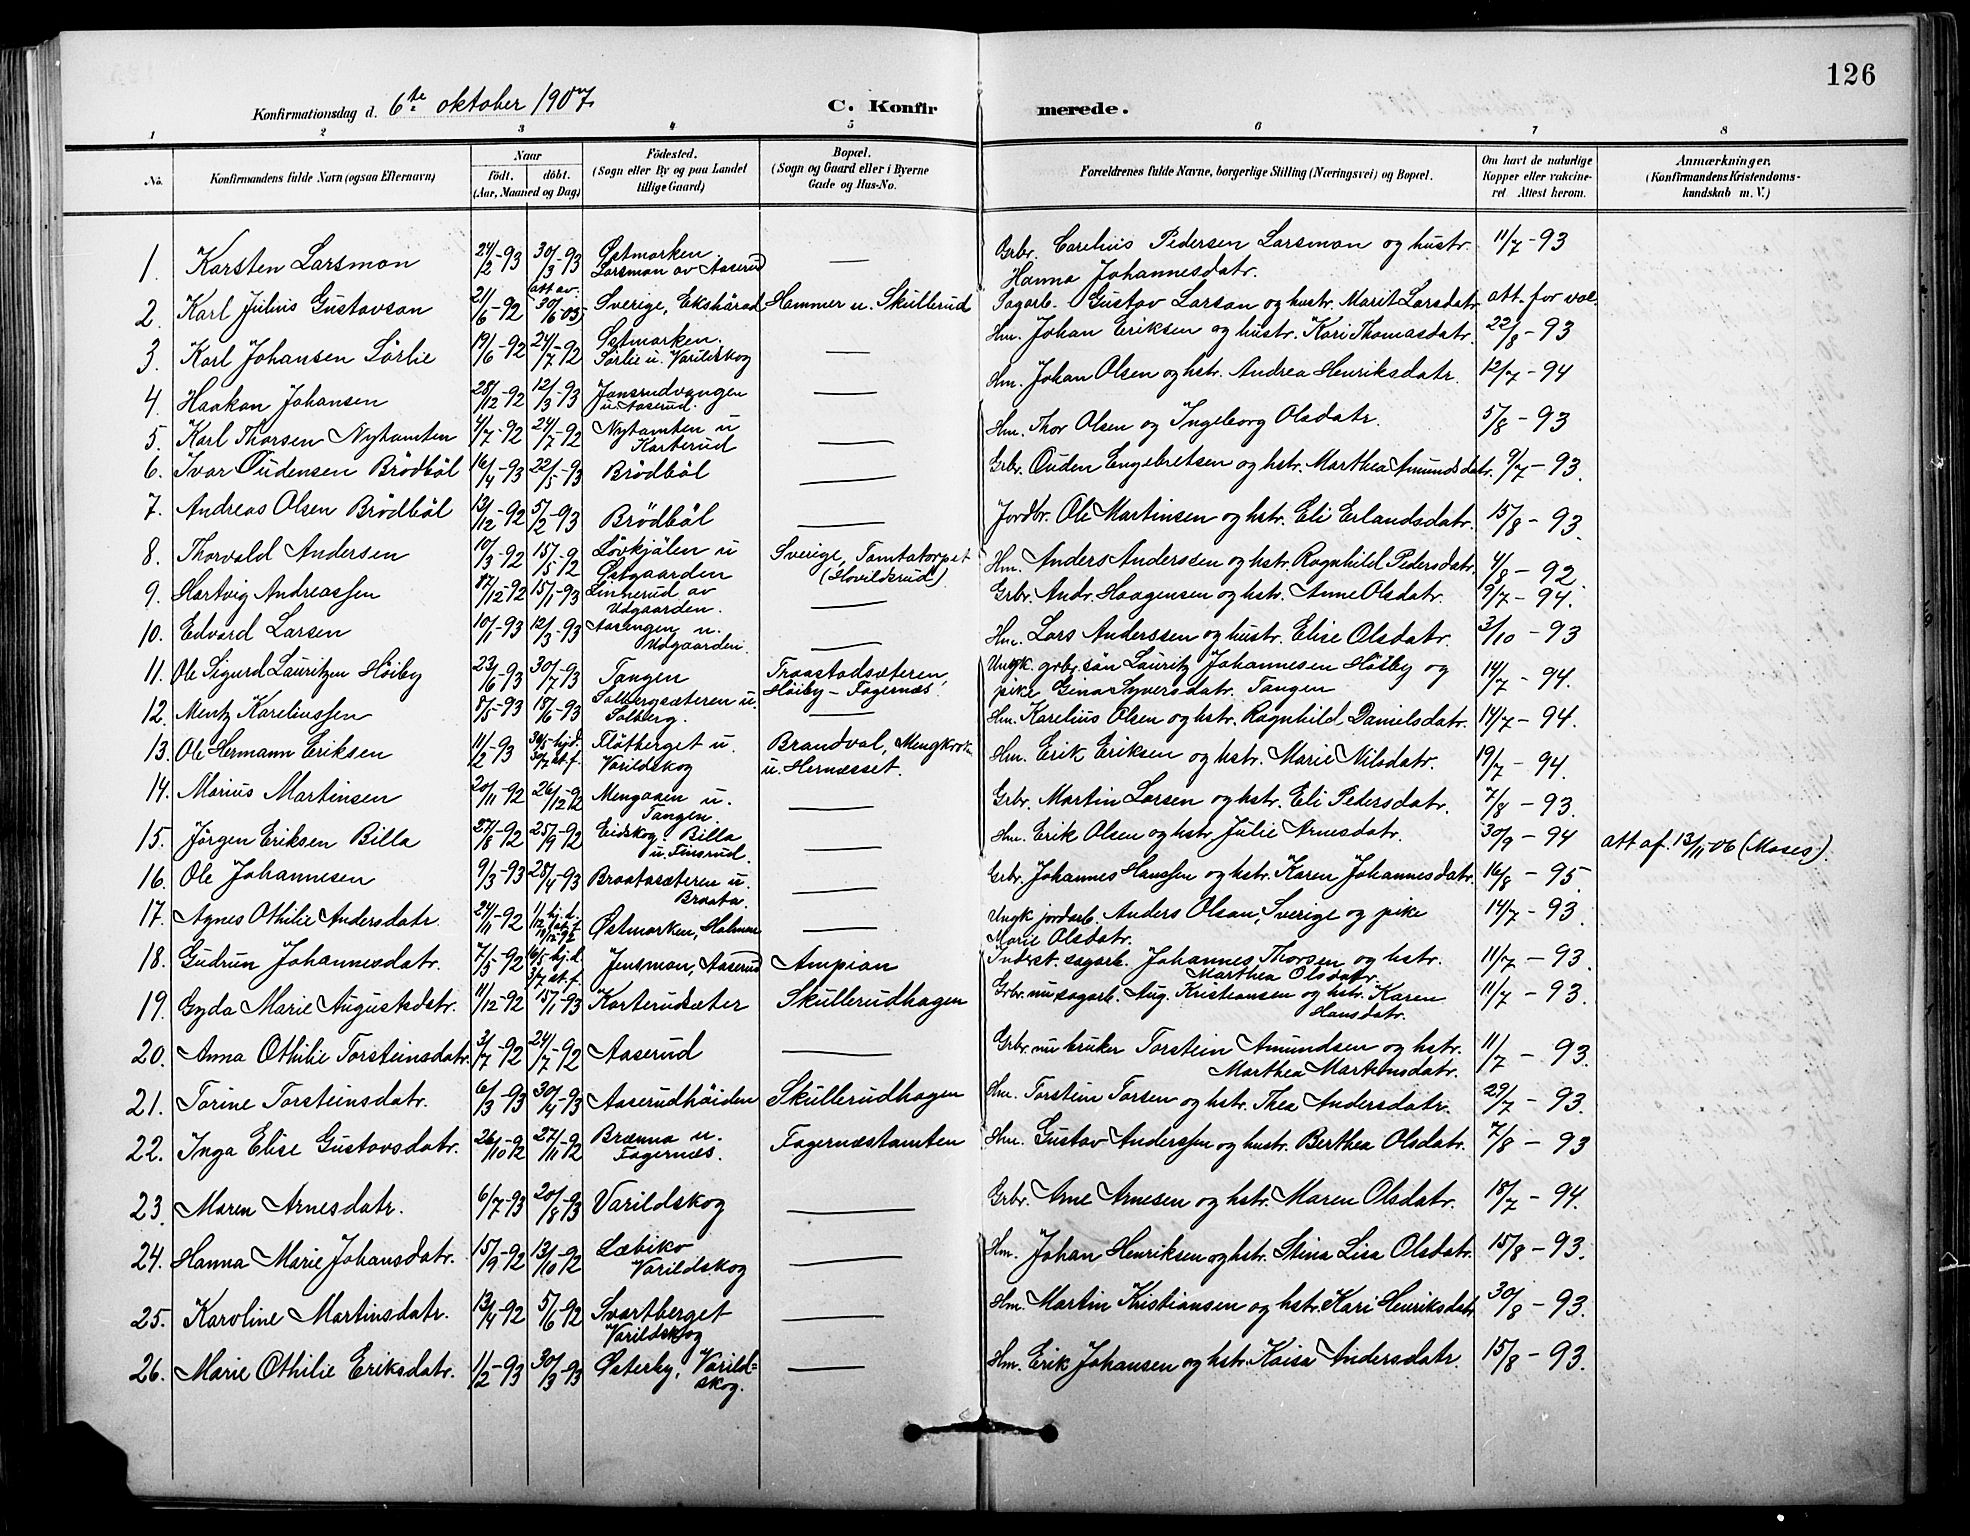 126
Konfirmationsdag d. 6te oktober 1907.
C. Konfirmerede.
1 2 3 4 5 6 7 8
No. Konfirmandens fulde Navn (ogsaa Efternavn) Naar födt. döbt. (Aar, Maaned og Dag) Födested. (Sogn eller By og paa Landet tillige Gaard) Bopæl. (Sogn og Gaard eller i Byerne Gade og Hus-No. Forældrenes fulde Navne, borgerlige Stilling (Næringsvei) og Bopæl. Om havt de naturlige Kopper eller vakcineret Attest herom. Anmærkninger. (Konfirmandens Kristendomskundskab m. V.)
1. Karsten Larsmon 24/2-93 30/3-93 Østmarken Larsmon av Aaserud — Grbr. Carelius Pedersen Larsmon og hustr. Hanna Johannesdatr. 11/7-93
2. Karl Julius Gustavson 21/6-92 att av. 30/6-05 Sverige, Ekshärad Hammer u. Skullerud Sagarb. Gustav Larson og hustr. Marit Larsdatr. att. for vac.
3. Karl Johansen Sörlie 19/6-92 24/7-92 Østmarken. Sörlie u. Varildskog — Hm. Johan Eriksen og hustr. Kari Thomasdatr. 22/8-93
4. Haakon Johansen 28/12-92 12/3-93 Jansrudvangen u. Aaserud. — Hm. Johan Olsen og hstr. Andrea Henriksdatr. 12/7-94
5. Karl Thorsen Nytomten 4/7-92 24/7-92 Nytomten u Karterud — Hm. Thor Olsen og Ingeborg Olsdatr. 5/8-93
6. Ivar Oudensen Brödböl 16/4-93 22/5-93 Brödböl — Grbr. Ouden Engebretsen og hstr. Marthea Amundsdatr. 9/7-93.
7. Andreas Olsen Brödböl 13/12-92 5/2-93 Brödböl — Jordbr. Ole Martinsen og hstr. Eli Erlandsdatr. 15/8-93.
8. Thorvald Andersen 10/3-92 15/5-92 Lövkjölen u Østgaarden Sverige, Tomtatorpet (Hovildsrud). Hm. Anders Anderssen og hstr. Ragnhild Pedersdatr. 4/8-92
9. Hartvig Andreassen 17/12-92 15/1-93 Linnerud av Udgaarden. — Grbr. Andr. Haagensen og hstr. Anne Olsdatr. 9/7-94.
10. Edvard Larsen 10/1-93 12/3-93 Aasengen u. Udgaarden. — Hm. Lars Anderssen og hustr. Elise Olsdatr. 3/10-93
11. Ole Sigurd Lauritzen Höiby 23/6-93 30/7-93 Tangen Traastadsæteren, Höiby-Fagernæs Ungk. grbr. sön Lauritz Johannesen Höiby og pike Gina Syversdatr. Tangen 14/7-94.
12. Mentz Kareliussen 8/5-93 18/6-93 Solbergsæteren u. Solberg. — Hm. Karelius Olsen og hstr. Ragnhild Danielsdatr. 14/7-94.
13. Ole Hermann Eriksen 11/2-93 30/5 hj.d. 30/7 st.f. Flötberget u. Varildskog Brandval, Mengkrok u. Hernæsset. Hm. Erik Eriksen og hstr. Marie Nilsdatr. 19/7-94.
14. Marius Martinsen 20/11-92 26/12-92 Mengaaen u. Tangen. — Grbr. Martin Larsen og hstr. Eli Pedersdatr. 7/8-93.
15. Jörgen Eriksen Billa 27/8-92 25/9-92 Eidskog. Billa u. Finsrud. — Hm. Erik Olsen og hstr. Julie Arnesdatr. 30/9-94 att af. 13/11-06 (Moses).
16. Ole Johannesen 9/3-93 28/4-93 Braatasæteren u. Braata. — Grbr. Johannes Hanssen og hstr. Karen Johannesdatr. 16/8-95.
17. Agnes Othilie Andersdatr. 24/11-92 11/12 hj.d. Østmarken, Holmen — Ungk. jordarb. Anders Olson, Sverige og pike Marie Olsdatr. 14/7-93.
18. Gudrun Johannesdatr. 7/5-92 16/5 hj.d. 3/7 st.f. Jensmon, Aaserud Ampian Inderst. sagarb. Johannes Thorsen og hstr. Marthea Olsdatr. 11/7-93.
19. Gyda Marie Augustsdatr. 11/12-92 15/1-93 Karterudsæter Skullerudhagen Grbr. nu sagarb. Aug. Kristiansen og hstr. Karen Hansdatr. 11/7-93.
20. Anna Othilie Torsteinsdatr. 3/7-92 24/7-92 Aaserud — Grbr. nu bruker Torstein Amundsen og hstr. Marthea Martinsdatr. 11/7-93.
21. Torine Torsteinsdatr. 6/3-93 30/4-93 Aaserudhöiden Skullerudhagen Hm. Torstein Torsen og hstr. Thea Andersdatr. 29/7-93.
22. Inga Elise Gustavsdatr. 26/10-92 27/11-92 Brænna u. Fagernæs. Fagernæstomten Hm. Gustav Anderssen og hustr. Berthea Olsdatr. 7/8-93
23. Maren Arnesdatr. 6/7-93 20/8-93 Varildskog — Grbr. Arne Arnesen og hstr. Maren Olsdatr. 18/7-94.
24. Hanna Marie Johansdatr. 15/9-92 13/10-92 Læbiko Varildskog — Hm. Johan Henriksen og hstr. Stina Lisa Olsdatr. 15/8-93.
25. Karoline Martinsdatr. 13/4-92 5/6-92 Svartberget Varildskog — Hm. Martin Kristiansen og hstr. Kari Henriksdatr. 30/8-93.
26. Marie Othilie Eriksdatr. 11/2-93 30/3-93 Østerby, Varildskog. — Hm. Erik Johansen og hstr. Kaisa Andersdatr. 15/8-93.